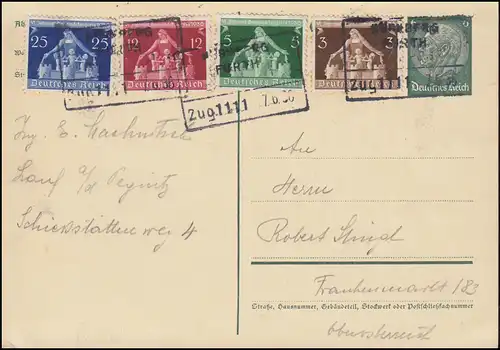 25 25
Deutsches Reich
12 12
Deutsches Reich
5 5
Deutsches Reich
3 3
Deutsches Reich
Deutsches Reich
NÜRNBERG
Zug 1111 7.6.36
Zug 1111
Lauf a/d Pegnitz
Schießstätten weg 4
An
Herrn
Robert
Frankenmarkt 182
Straße, Hausnummer, Gebäudeteil, Stockwerk oder Postschließfachnummer
Oberösterreich